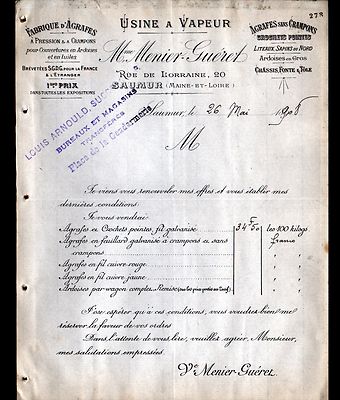 278
FABRIQUE D'AGRAFES
A PRESSION & A CRAMPONS
pour Couvertures en Ardoises
et en tuiles
BREVETÉES S.G.D.G. POUR LA FRANCE
& L'ÉTRANGER
1ers PRIX
DANS TOUTES LES EXPOSITIONS
USINE A VAPEUR
Mme Menier-Guéret
RUE DE LORRAINE, 20
SAUMUR (MAINE-ET-LOIRE)
AGRAFES SANS CRAMPONS
CROCHETS POINTES
LITEAUX SAPINS DU NORD
Ardoises en Gros
CHÂSSIS, FONTE & TÔLE
LOUIS ARNOULD SUCC
BUREAUX ET MAGASINS
TRANSFÉRÉS
Place de la Gendarmerie
Saumur, le 26 Mai 1908
M
Je viens vous renouveler mes offres et vous établir mes
dernières conditions:
Je vous vendrai
Agrafes ou Crochets pointes, fil galvanisé 34F50 les 100 kilogs
Agrafes en feuillard galvanisé à crampons ou sans
crampons franco
Agrafes en fil cuivre rouge
Agrafes en fil cuivre jaune
Ardoises par wagon complet, Remise
J'ose espérer qu'à ces conditions, vous voudrez bien me
réserver la faveur de vos ordres
Dans l'attente de vous lire, veuillez agréer, Monsieur,
mes salutations empressées.
Vve Menier-Guéret